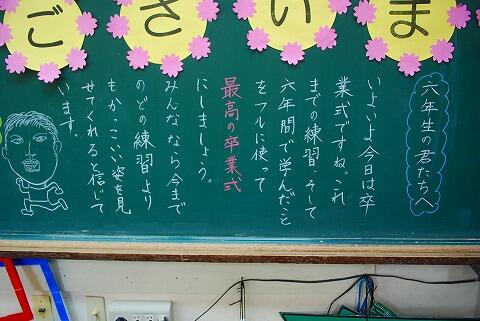 ございま
六年生の君たちへ
いよいよ今日は卒
業式ですね。これ
までの練習、そして
六年間で学んだこと
をフルに使って
最高の卒業式
にしましょう。
みんななら今まで
のどの練習より
もかっこいい姿を見
せてくれると信じて
います。